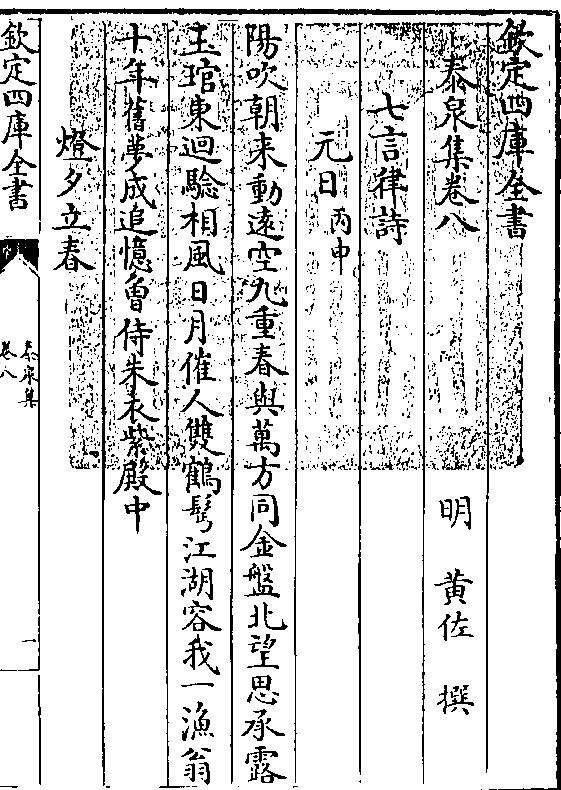 欽定四庫全書
泰泉集卷八
明 黃佐 撰
七言律詩
元日丙申
陽吹朝来動遠空九重春與萬方同金盤北望思承露
玉琯東迴驗相風日月催人雙鶴髩江湖容我一漁翁
十年舊夢成追憶曾侍朱衣紫殿中
燈夕立春
欽定四庫全書
泰泉集
卷八
一